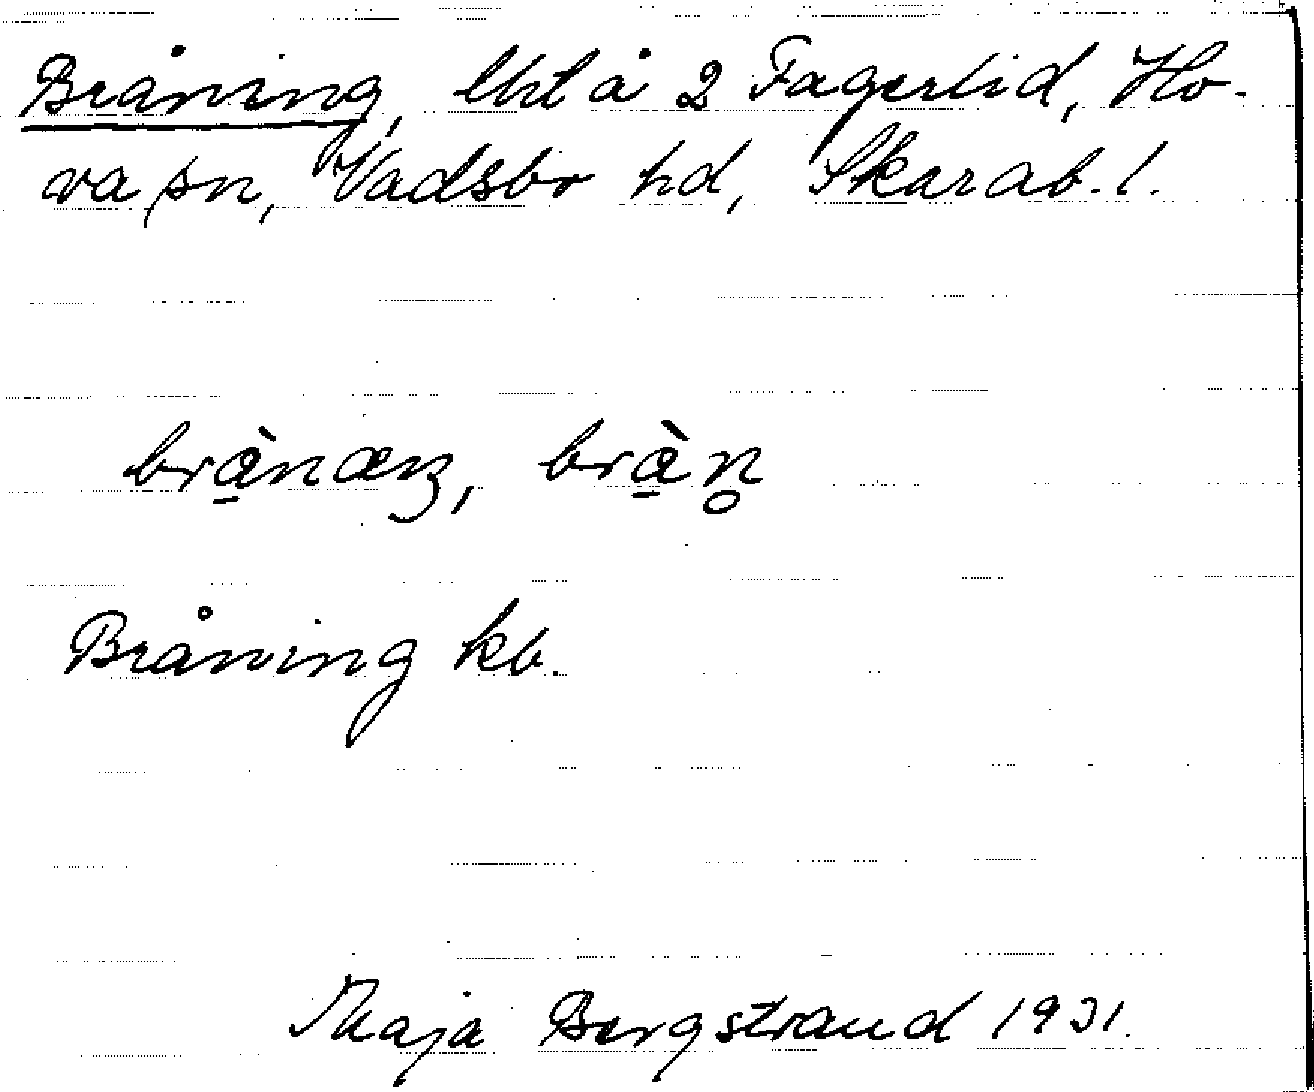 Bråning, lht å 2 Fagerlid, Ho-
va sn, Vadsbo hd, Skarab. l.
brànæŋ, bràn̥
Bråning kb.
Maja Bergstrand 1931.